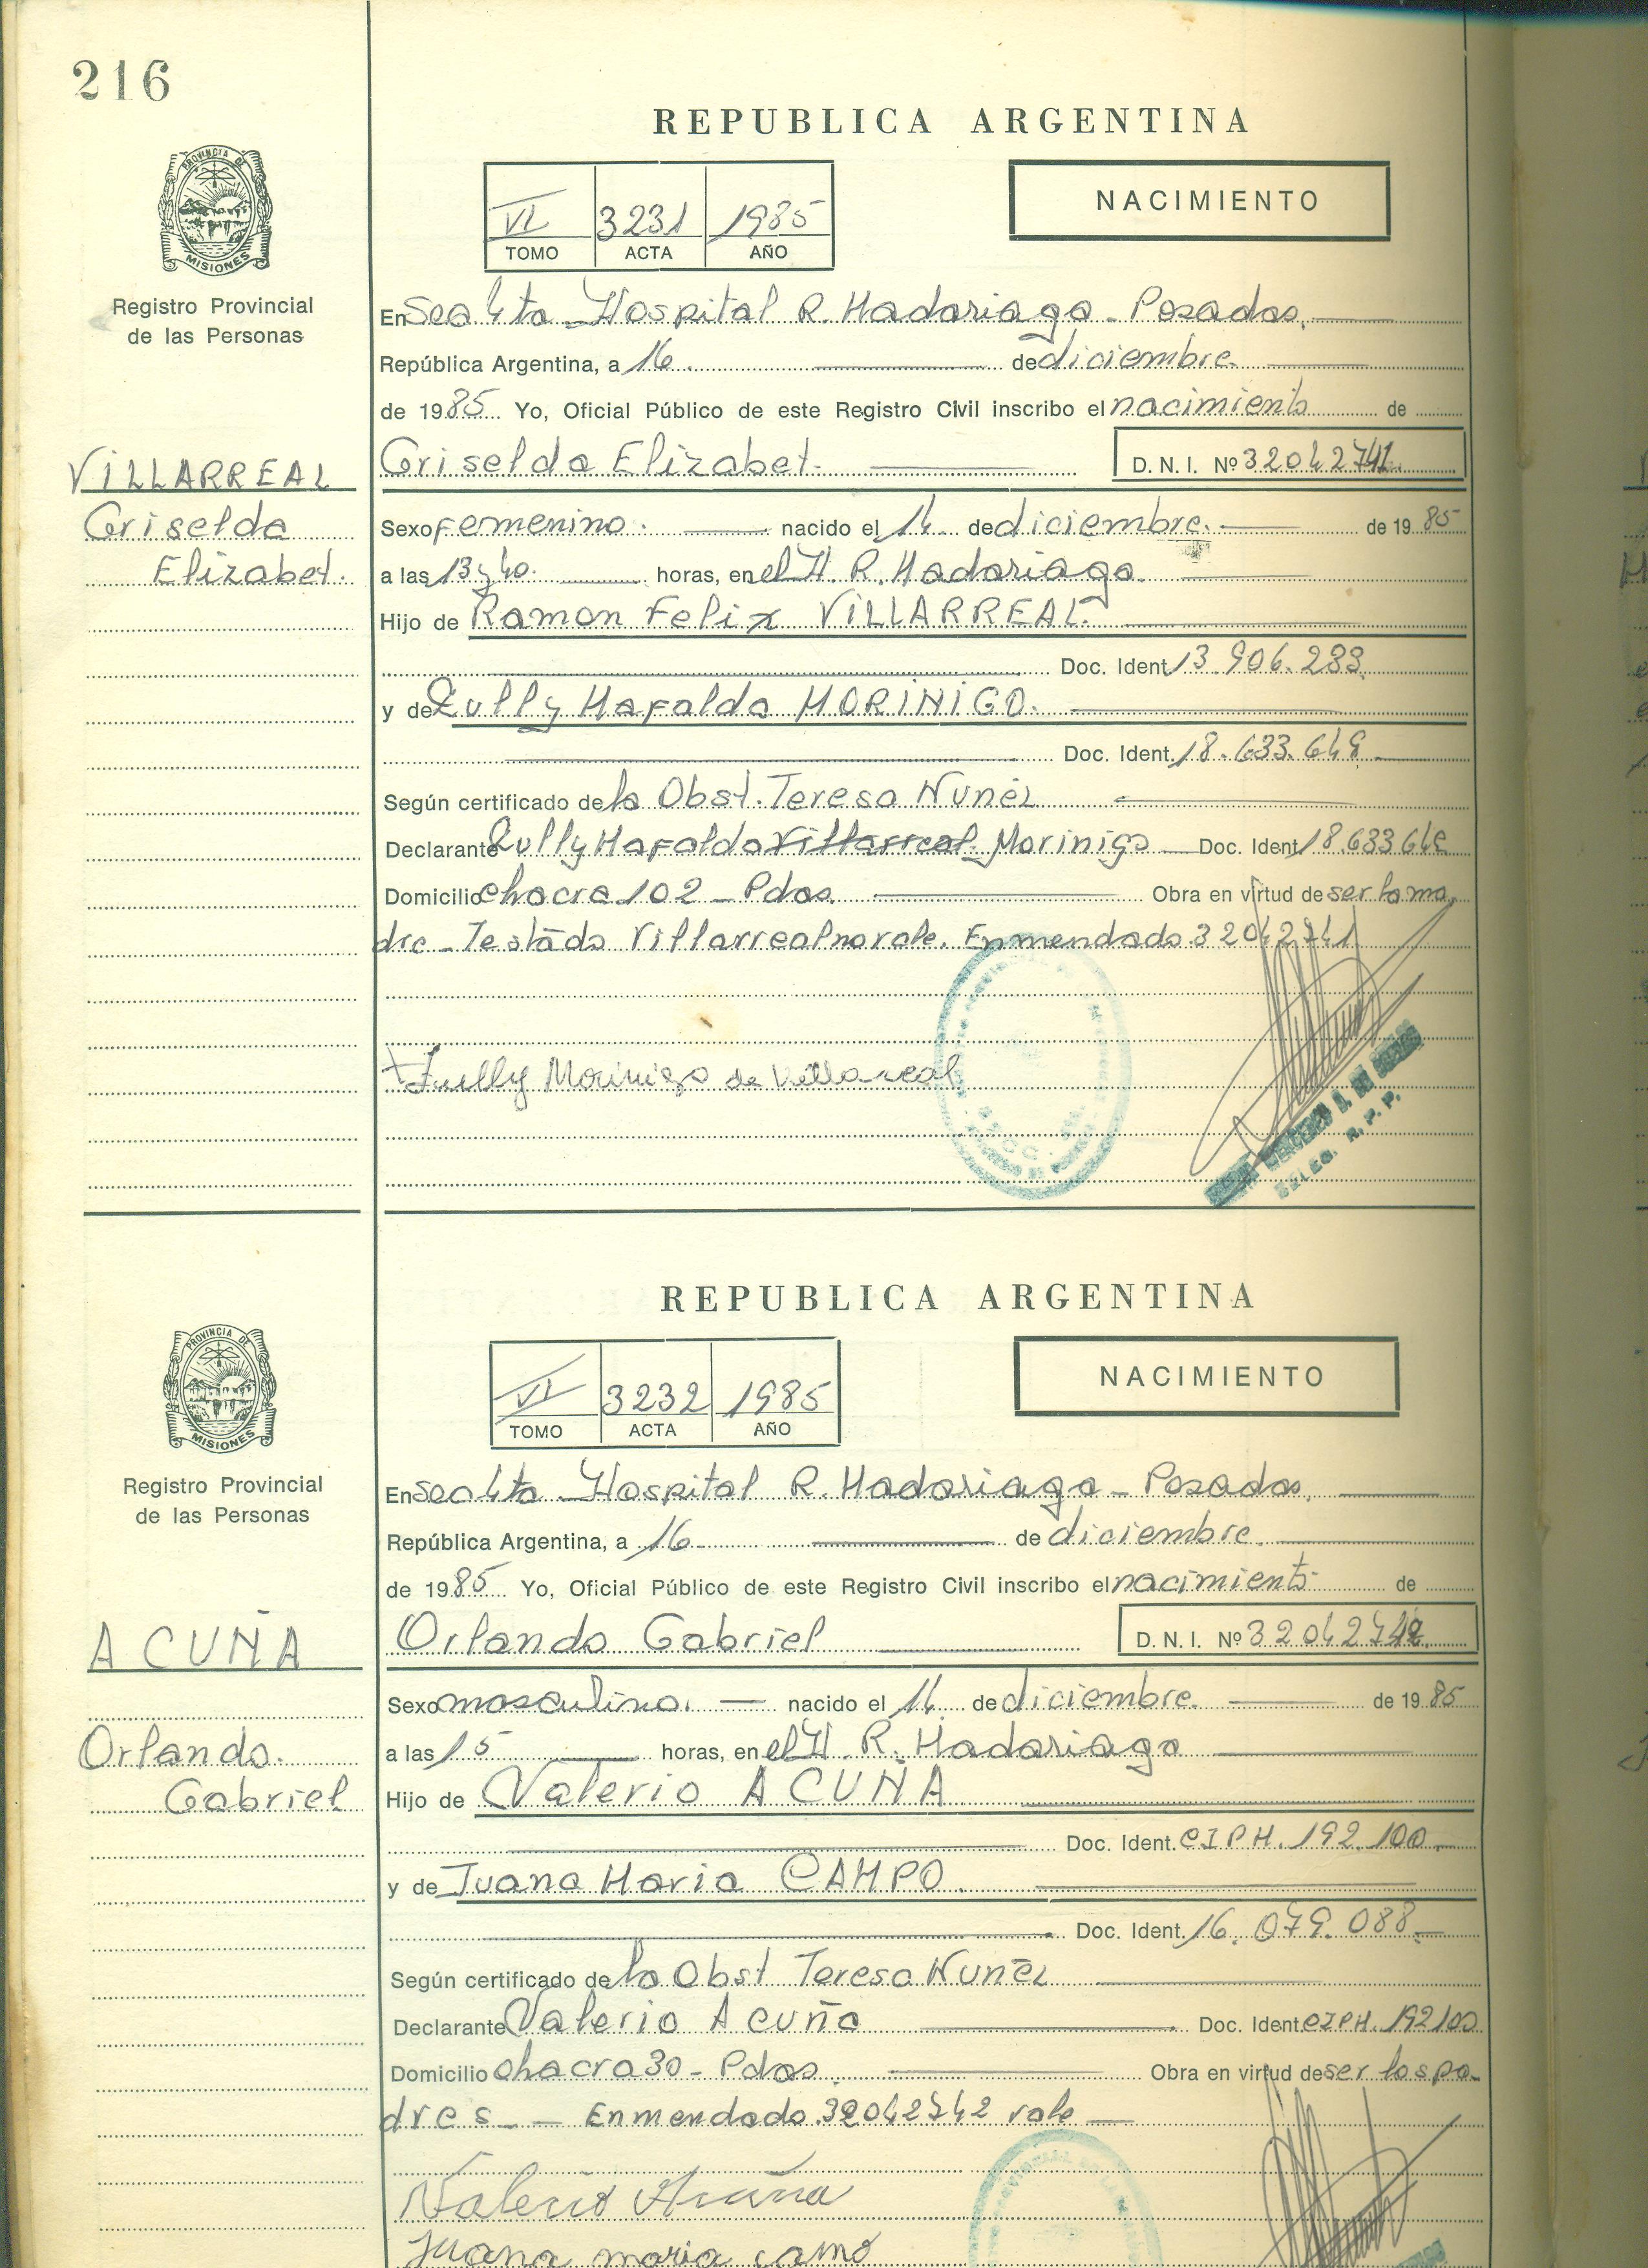 216
REPUBLICA ARGENTINA
PROVINCIA DE
MISIONES
Registro Provincial
de las Personas
VI 3231 1985
TOMO ACTA AÑO
NACIMIENTO
En Sec 4ta Hospital R. Madariaga - Posadas,
República Argentina, a 16 de diciembre
de 1985 Yo, Oficial Público de este Registro Civil inscribo el nacimiento de
Griselda Elizabet. D. N. I. Nº 32042741
VILLARREAL
Griselda
Elizabet.
Sexo Femenino. nacido el 14 de diciembre. de 1985
a las 13 y 40. horas, en el H. R. Madariaga
Hijo de Ramon Felix VILLARREAL.
Doc. Ident. 13.906.283
y de Zully Mafalda MORINIGO.
Doc. Ident. 18.633.649
Según certificado de la Obst. Teresa Nuñez
Declarante Zully Mafalda Villarreal Morinigo Doc. Ident. 18.633.649
Domicilio chacra 102 - Pdas. Obra en virtud de ser la ma
dre - Testado Villarreal no vale. Enmendado 32042741
Zully Morinigo de Villareal
DELEG. R. P. P.
REPUBLICA ARGENTINA
PROVINCIA DE
MISIONES
Registro Provincial
de las Personas
VI 3232 1985
TOMO ACTA AÑO
NACIMIENTO
En Sec 4ta Hospital R. Madariaga - Posadas,
República Argentina, a 16 de diciembre.
de 1985 Yo, Oficial Público de este Registro Civil inscribo el nacimiento de
Orlando Gabriel D. N. I. Nº 32042742
ACUÑA
Orlando
Gabriel
Sexo masculino. nacido el 14 de diciembre. de 1985
a las 15 horas, en el H. R. Madariaga
Hijo de Valerio ACUÑA
Doc. Ident. CIPM. 192.100
y de Juana Maria CAMPO.
Doc. Ident. 16.079.088
Según certificado de la Obst Teresa Nuñez
Declarante Valerio Acuña Doc. Ident. CIPM. 192100
Domicilio chacra 30 - Pdas. Obra en virtud de ser los pa-
dres - Enmendado 32042742 vale
Valerio Acuña
Juana maria camo